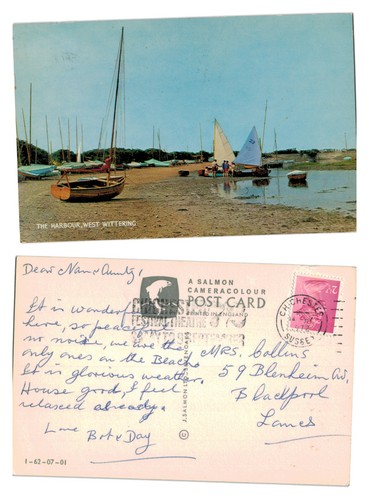 THE HARBOUR, WEST WITTERING
Dear Nan & Aunty!
It is wonderful
here, so peaceful
no noise, we are the
only ones on the Beach
It is glorious weather,
House good, I feel
relaxed already.
Love
A SALMON
CAMERACOLOUR
POST CARD
PRINTED IN ENGLAND
CHICHESTER
FESTIVAL THEATRE
CHICHESTER
SUSSEX
MRS. Collins
59 Blenheim Av,
Blackpool
Lancs
1-62-07-01